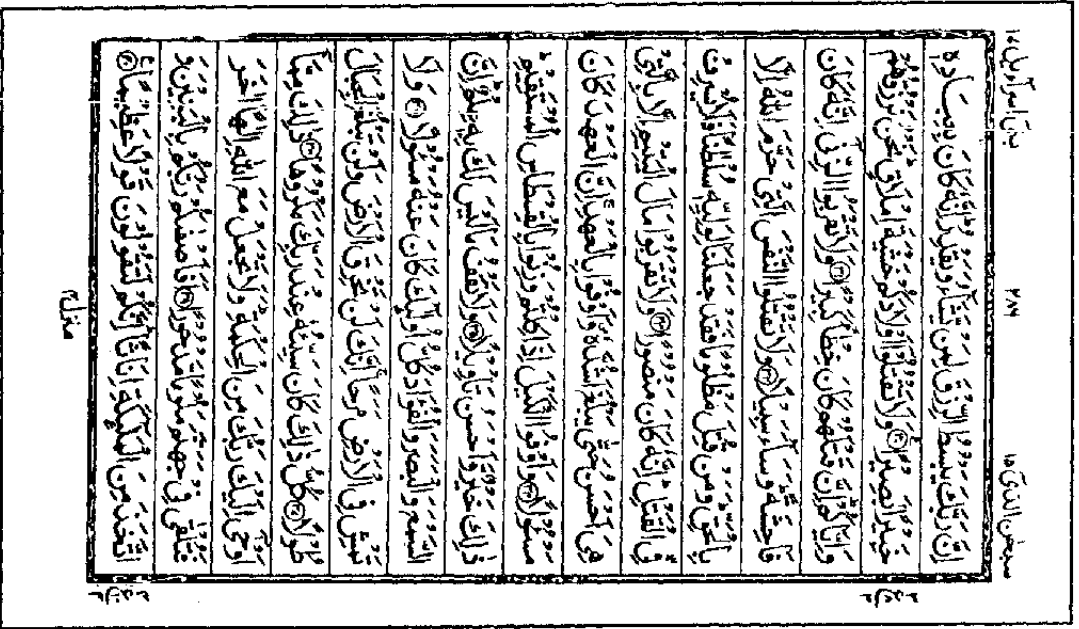 بنیٓ اسرآءیل ۱۷
سبحٰن الذیٓ ۱۵
اِنَّ رَبَّكَ يَبْسُطُ الرِّزْقَ لِمَنْ يَّشَآءُ وَيَقْدِرُ ؕ اِنَّهٗ كَانَ بِعِبَادِهٖ
خَبِيْرًۢا بَصِيْرًا ۳۰ وَلَا تَقْتُلُوْٓا اَوْلَادَكُمْ خَشْيَةَ اِمْلَاقٍ ؕ نَحْنُ نَرْزُقُهُمْ
وَاِيَّاكُمْ ؕ اِنَّ قَتْلَهُمْ كَانَ خِطْاً كَبِيْرًا ۳۱ وَلَا تَقْرَبُوا الزِّنٰٓى اِنَّهٗ كَانَ
فَاحِشَةً ؕ وَسَآءَ سَبِيْلًا ۳۲ وَلَا تَقْتُلُوا النَّفْسَ الَّتِيْ حَرَّمَ اللّٰهُ اِلَّا
بِالْحَقِّ ؕ وَمَنْ قُتِلَ مَظْلُوْمًا فَقَدْ جَعَلْنَا لِوَلِيِّهٖ سُلْطٰنًا فَلَا يُسْرِفْ
فِّى الْقَتْلِ ؕ اِنَّهٗ كَانَ مَنْصُوْرًا ۳۳ وَلَا تَقْرَبُوْا مَالَ الْيَتِيْمِ اِلَّا بِالَّتِيْ
هِيَ اَحْسَنُ حَتّٰى يَبْلُغَ اَشُدَّهٗ ۪ وَاَوْفُوْا بِالْعَهْدِ ۚ اِنَّ الْعَهْدَ كَانَ
مَسْئُوْلًا ۳۴ وَاَوْفُوا الْكَيْلَ اِذَا كِلْتُمْ وَزِنُوْا بِالْقِسْطَاسِ الْمُسْتَقِيْمِ ؕ
ذٰلِكَ خَيْرٌ وَّاَحْسَنُ تَاْوِيْلًا ۳۵ وَلَا تَقْفُ مَا لَيْسَ لَكَ بِهٖ عِلْمٌ ؕ اِنَّ
السَّمْعَ وَالْبَصَرَ وَالْفُؤَادَ كُلُّ اُولٰٓئِكَ كَانَ عَنْهُ مَسْئُوْلًا ۳۶ وَلَا
تَمْشِ فِى الْاَرْضِ مَرَحًا ۚ اِنَّكَ لَنْ تَخْرِقَ الْاَرْضَ وَلَنْ تَبْلُغَ الْجِبَالَ
طُوْلًا ۳۷ كُلُّ ذٰلِكَ كَانَ سَيِّئُهٗ عِنْدَ رَبِّكَ مَكْرُوْهًا ۳۸ ذٰلِكَ مِمَّآ
اَوْحٰٓى اِلَيْكَ رَبُّكَ مِنَ الْحِكْمَةِ ؕ وَلَا تَجْعَلْ مَعَ اللّٰهِ اِلٰهًا اٰخَرَ
فَتُلْقٰى فِيْ جَهَنَّمَ مَلُوْمًا مَّدْحُوْرًا ۳۹ اَفَاَصْفٰىكُمْ رَبُّكُمْ بِالْبَنِيْنَ وَ
اتَّخَذَ مِنَ الْمَلٰٓئِكَةِ اِنَاثًا ؕ اِنَّكُمْ لَتَقُوْلُوْنَ قَوْلًا عَظِيْمًا ۴۰
منزل ۴